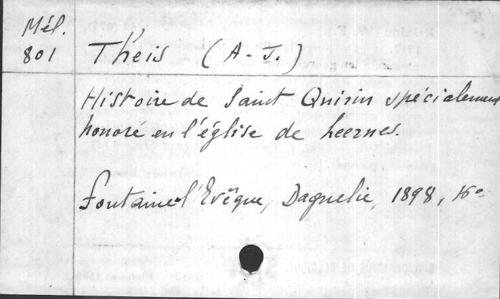 Mél.
801
Theis (A-J.)
Histoire de Saint Quirin spécialement
honoré en l'église de Leernes.
Fontaine-l'Evêque, Daquelie, 1898,